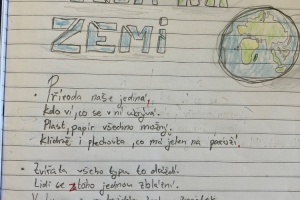 ZEMi
Příroda naše jediná,
kdo ví, co se v ní ukrývá.
Plast, papír všechno možný.
Klidně i plechovka, co má jelen na paroží.
Zvířata všeho typu to dráždí.
Lidi se z toho jednou zblázní.